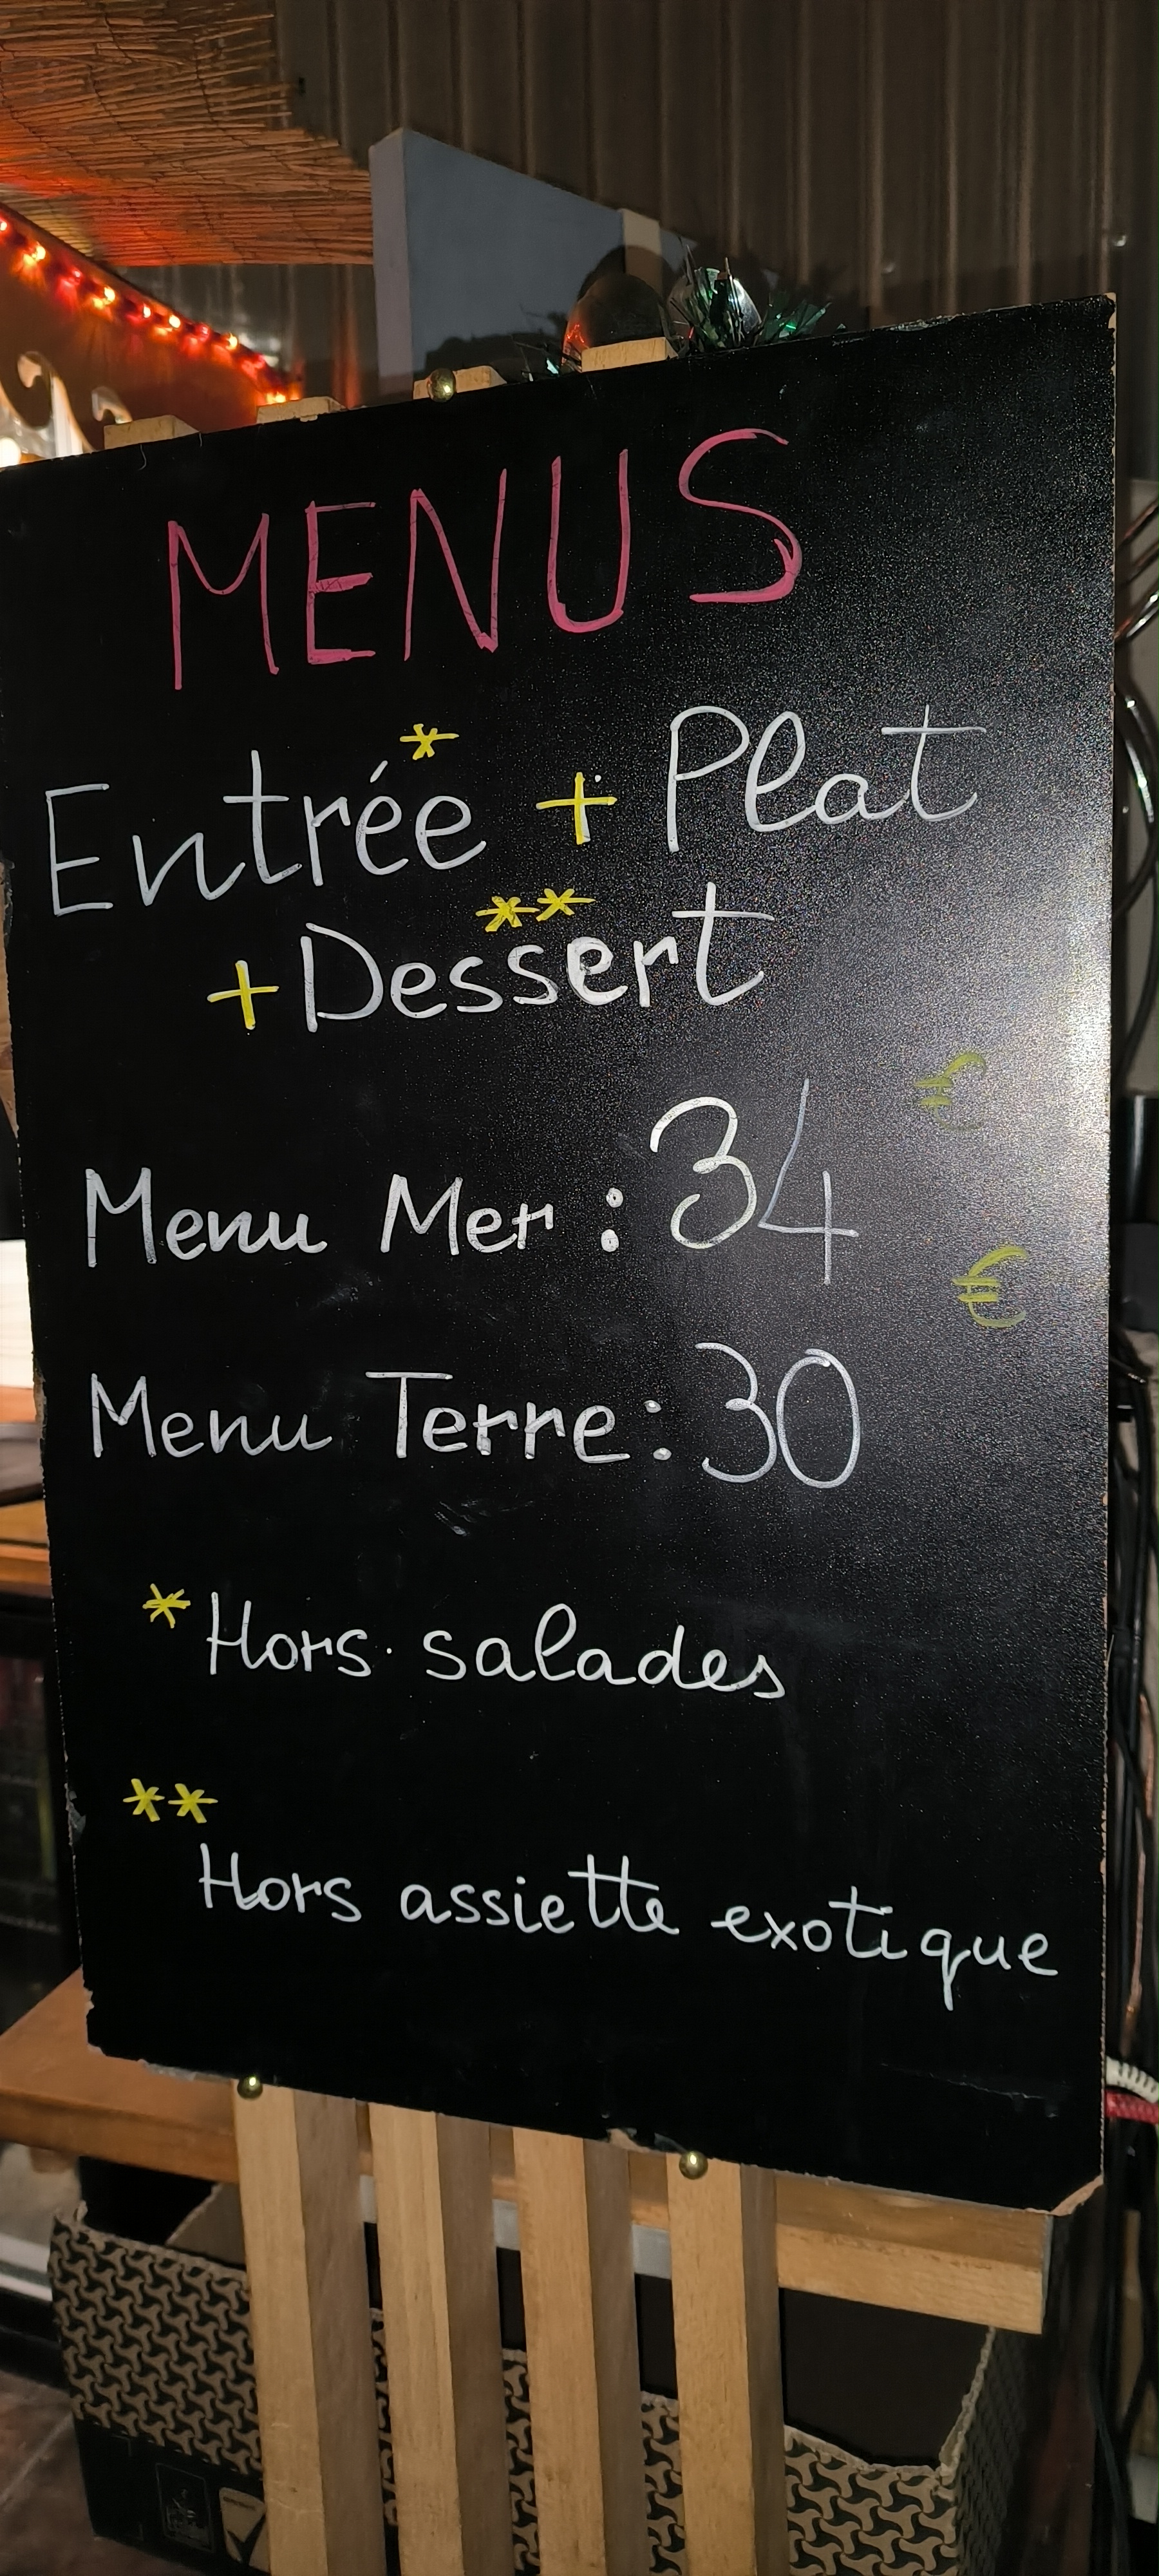 MENUS
Entrée* + Plat
+ Dessert**
Menu Mer : 34 €
Menu Terre : 30 €
* Hors salades
**
Hors assiette exotique